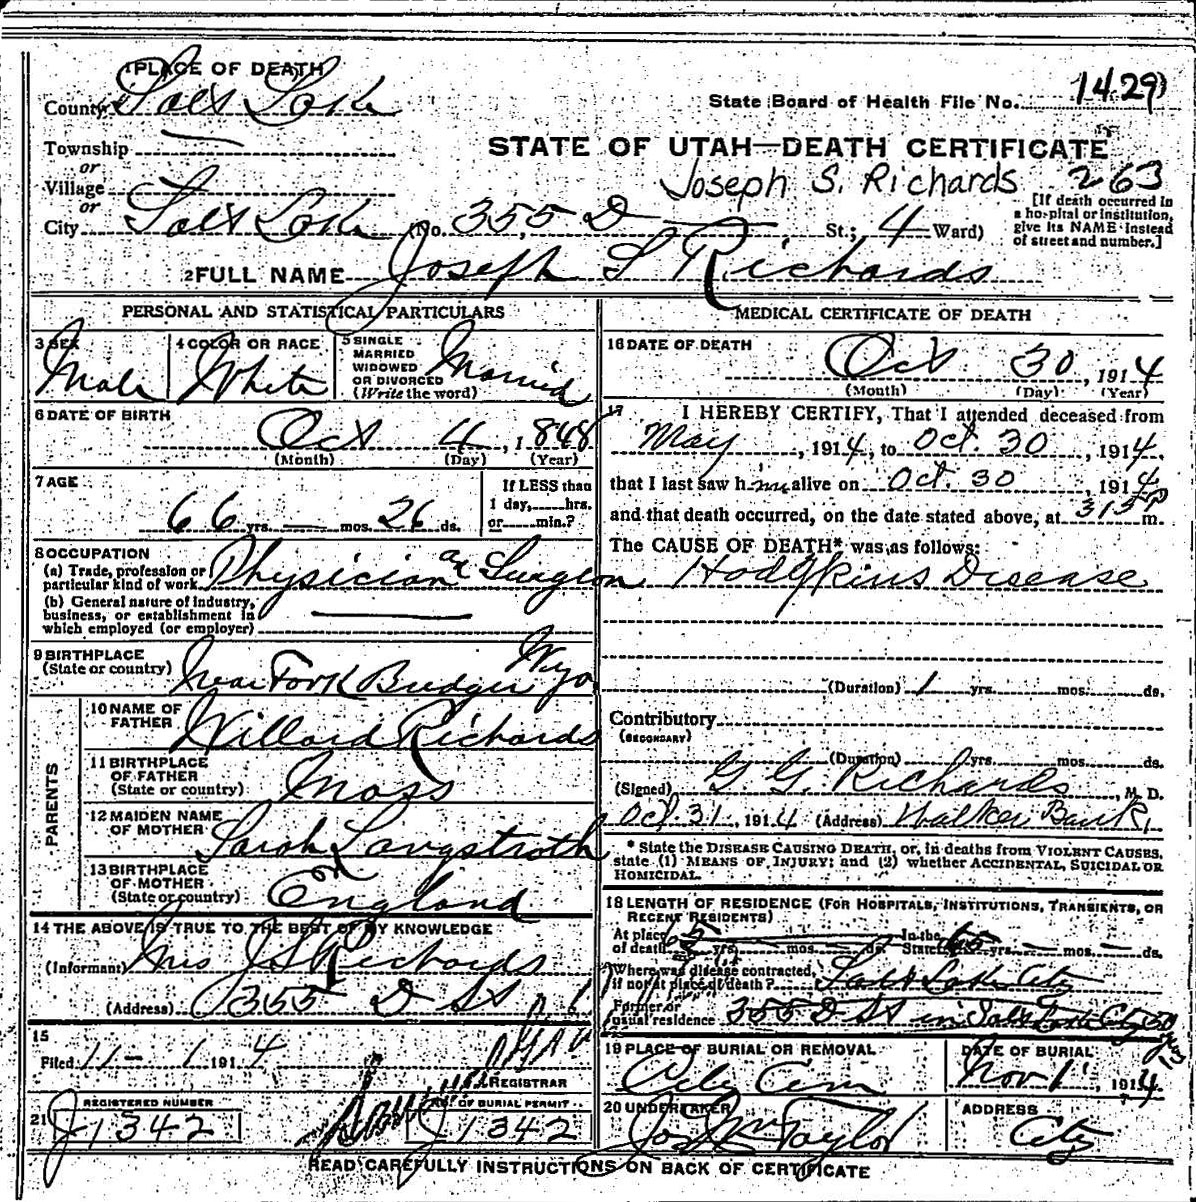 1 PLACE OF DEATH
County Salt Lake
State Board of Health File No. 1429
Township
or
STATE OF UTAH—DEATH CERTIFICATE
Village
Joseph S. Richards 263
or
City Salt Lake (No. 355 D St.; 4 Ward)
[If death occurred in
a hospital or institution,
give its NAME instead
of street and number.]
2 FULL NAME Joseph S Richards
PERSONAL AND STATISTICAL PARTICULARS
3 SEX
Male
4 COLOR OR RACE
White
5 SINGLE
MARRIED
WIDOWED
OR DIVORCED
(Write the word)
Married
6 DATE OF BIRTH
Oct 4, 1848
(Month) (Day) (Year)
7 AGE
66 yrs. — mos. 26 ds.
If LESS than
1 day, hrs.
or min.?
8 OCCUPATION
(a) Trade, profession or
particular kind of work Physician and Surgeon
(b) General nature of industry,
business, or establishment in
which employed (or employer)
9 BIRTHPLACE
(State or country) Near Fork Bridger Wyo
PARENTS
10 NAME OF
FATHER Willard Richards
11 BIRTHPLACE
OF FATHER
(State or country) Mass
12 MAIDEN NAME
OF MOTHER Sarah Langstroth
13 BIRTHPLACE
OF MOTHER
(State or country) England
14 THE ABOVE IS TRUE TO THE BEST OF MY KNOWLEDGE
(Informant) Mrs J S Richards
(Address) 355 D St
15
Filed 11-1 1914
REGISTRAR
21
REGISTERED NUMBER
J1342
NO. OF BURIAL PERMIT
J1342
MEDICAL CERTIFICATE OF DEATH
16 DATE OF DEATH
Oct 30, 1914
(Month) (Day) (Year)
17 I HEREBY CERTIFY, That I attended deceased from
May, 1914, to Oct. 30, 1914,
that I last saw him alive on Oct. 30, 1914
and that death occurred, on the date stated above, at 315P m.
The CAUSE OF DEATH* was as follows:
Hodgkins Disease
(Duration) 1 yrs. mos. ds.
Contributory
(SECONDARY)
(Duration) yrs. mos. ds.
(Signed) G. G. Richards, M. D.
Oct. 31, 1914 (Address) Walker Bank,
* State the DISEASE CAUSING DEATH, or, in deaths from VIOLENT CAUSES,
state (1) MEANS OF INJURY; and (2) whether ACCIDENTAL, SUICIDAL OR
HOMICIDAL.
18 LENGTH OF RESIDENCE (FOR HOSPITALS, INSTITUTIONS, TRANSIENTS, OR
RECENT RESIDENTS)
At place In the
of death yrs. mos. ds. State 65 yrs. mos. ds.
Where was disease contracted,
if not at place of death? Salt Lake City
Former or
usual residence 355 D St in Salt Lake City
19 PLACE OF BURIAL OR REMOVAL
City Cem
DATE OF BURIAL
Nov 1, 1914
20 UNDERTAKER
Jos Wm Taylor
ADDRESS
City
READ CAREFULLY INSTRUCTIONS ON BACK OF CERTIFICATE